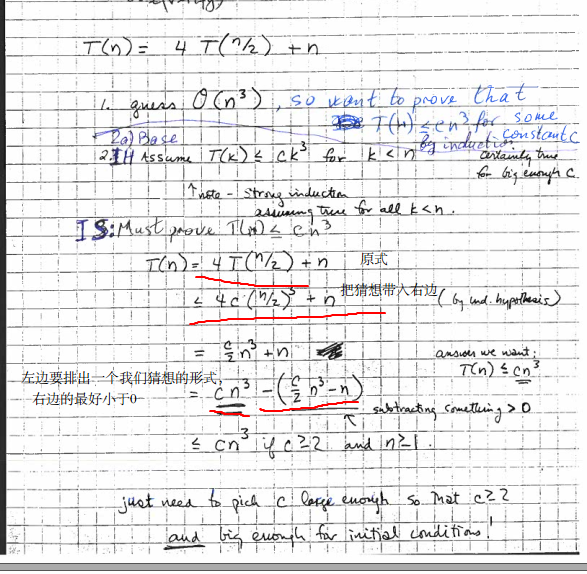 T(n) = 4 T(n/2) + n
1. guess O(n³), so want to prove that
T(n) ≤ cn³ for some
constant c
by induction.
2a) Base
certainly true
for big enough c.
2. IH Assume T(k) ≤ ck³ for k < n
↑ note - strong induction
assuming true for all k < n.
IS: Must prove T(n) ≤ cn³
T(n) = 4 T(n/2) + n 原式
≤ 4c (n/2)³ + n 把猜想带入右边 (by ind. hypothesis)
= c/2 n³ + n
answer we want:
T(n) ≤ cn³
左边要排出一个我们猜想的形式，
右边的最好小于0
= cn³ - (c/2 n³ - n)
↑ subtracting something > 0
≤ cn³ if c ≥ 2 and n ≥ 1.
just need to pick c large enough so that c ≥ 2
and big enough for initial conditions!